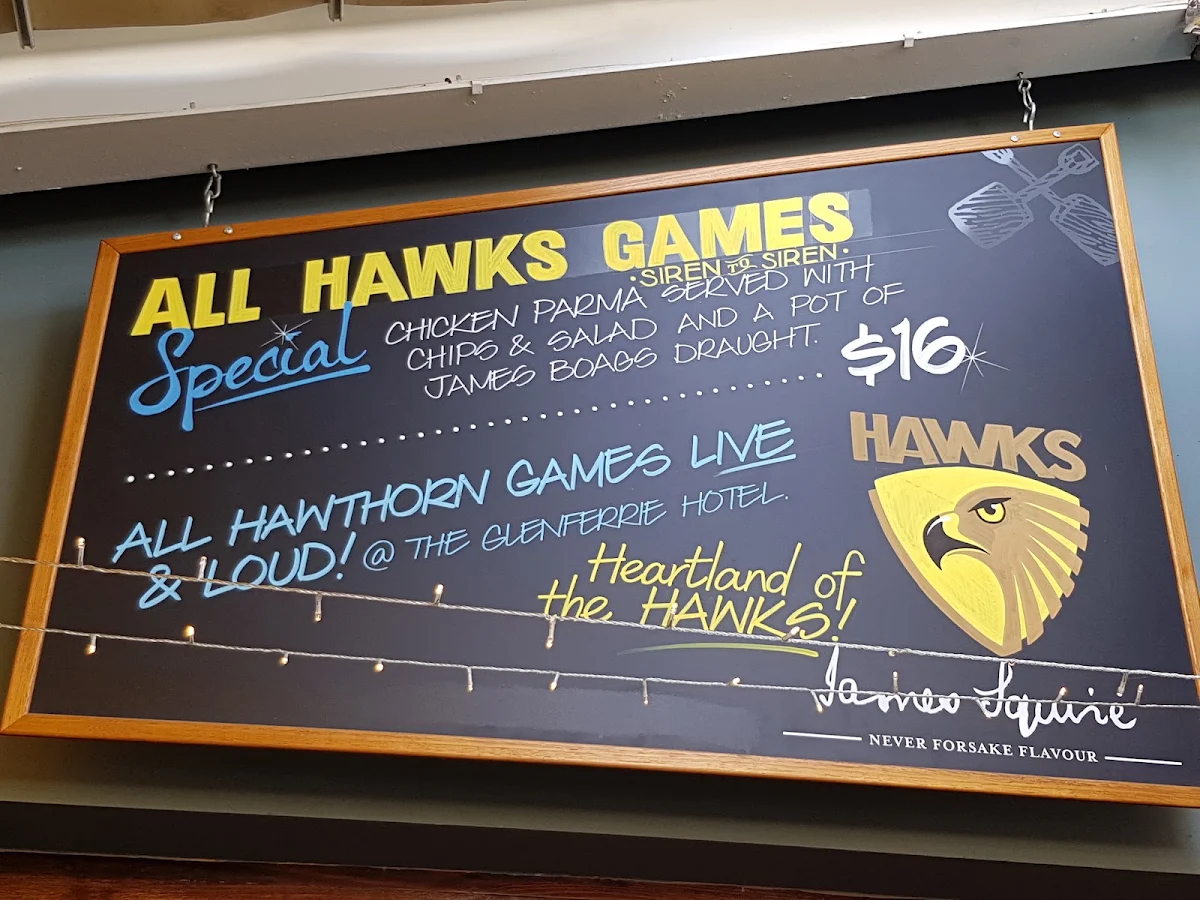 ALL HAWKS GAMES
·SIREN TO SIREN·
Special
CHICKEN PARMA SERVED WITH
CHIPS & SALAD AND A POT OF
JAMES BOAGS DRAUGHT.
$16
ALL HAWTHORN GAMES LIVE
& LOUD! @ THE GLENFERRIE HOTEL.
Heartland of
the HAWKS!
HAWKS
James Squire
NEVER FORSAKE FLAVOUR